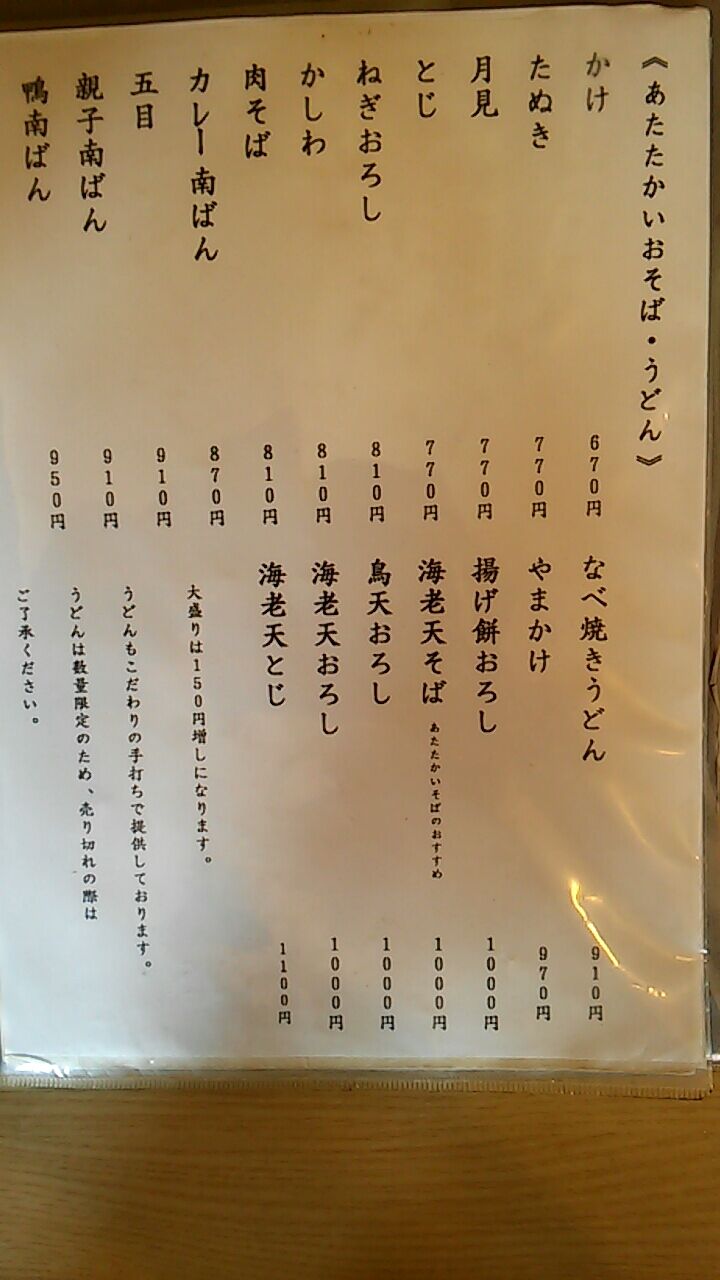 《あたたかいおそば・うどん》
かけ 670円
たぬき 770円
月見 770円
とじ 770円
ねぎおろし 810円
かしわ 810円
肉そば 810円
カレー南ばん 870円
五目 910円
親子南ばん 910円
鴨南ばん 950円
なべ焼きうどん 910円
やまかけ 970円
揚げ餅おろし 1000円
海老天そば あたたかいそばのおすすめ 1000円
鳥天おろし 1000円
海老天おろし 1000円
海老天とじ 1100円
大盛りは150円増しになります。
うどんもこだわりの手打ちで提供しております。
うどんは数量限定のため、売り切れの際は
ご了承ください。